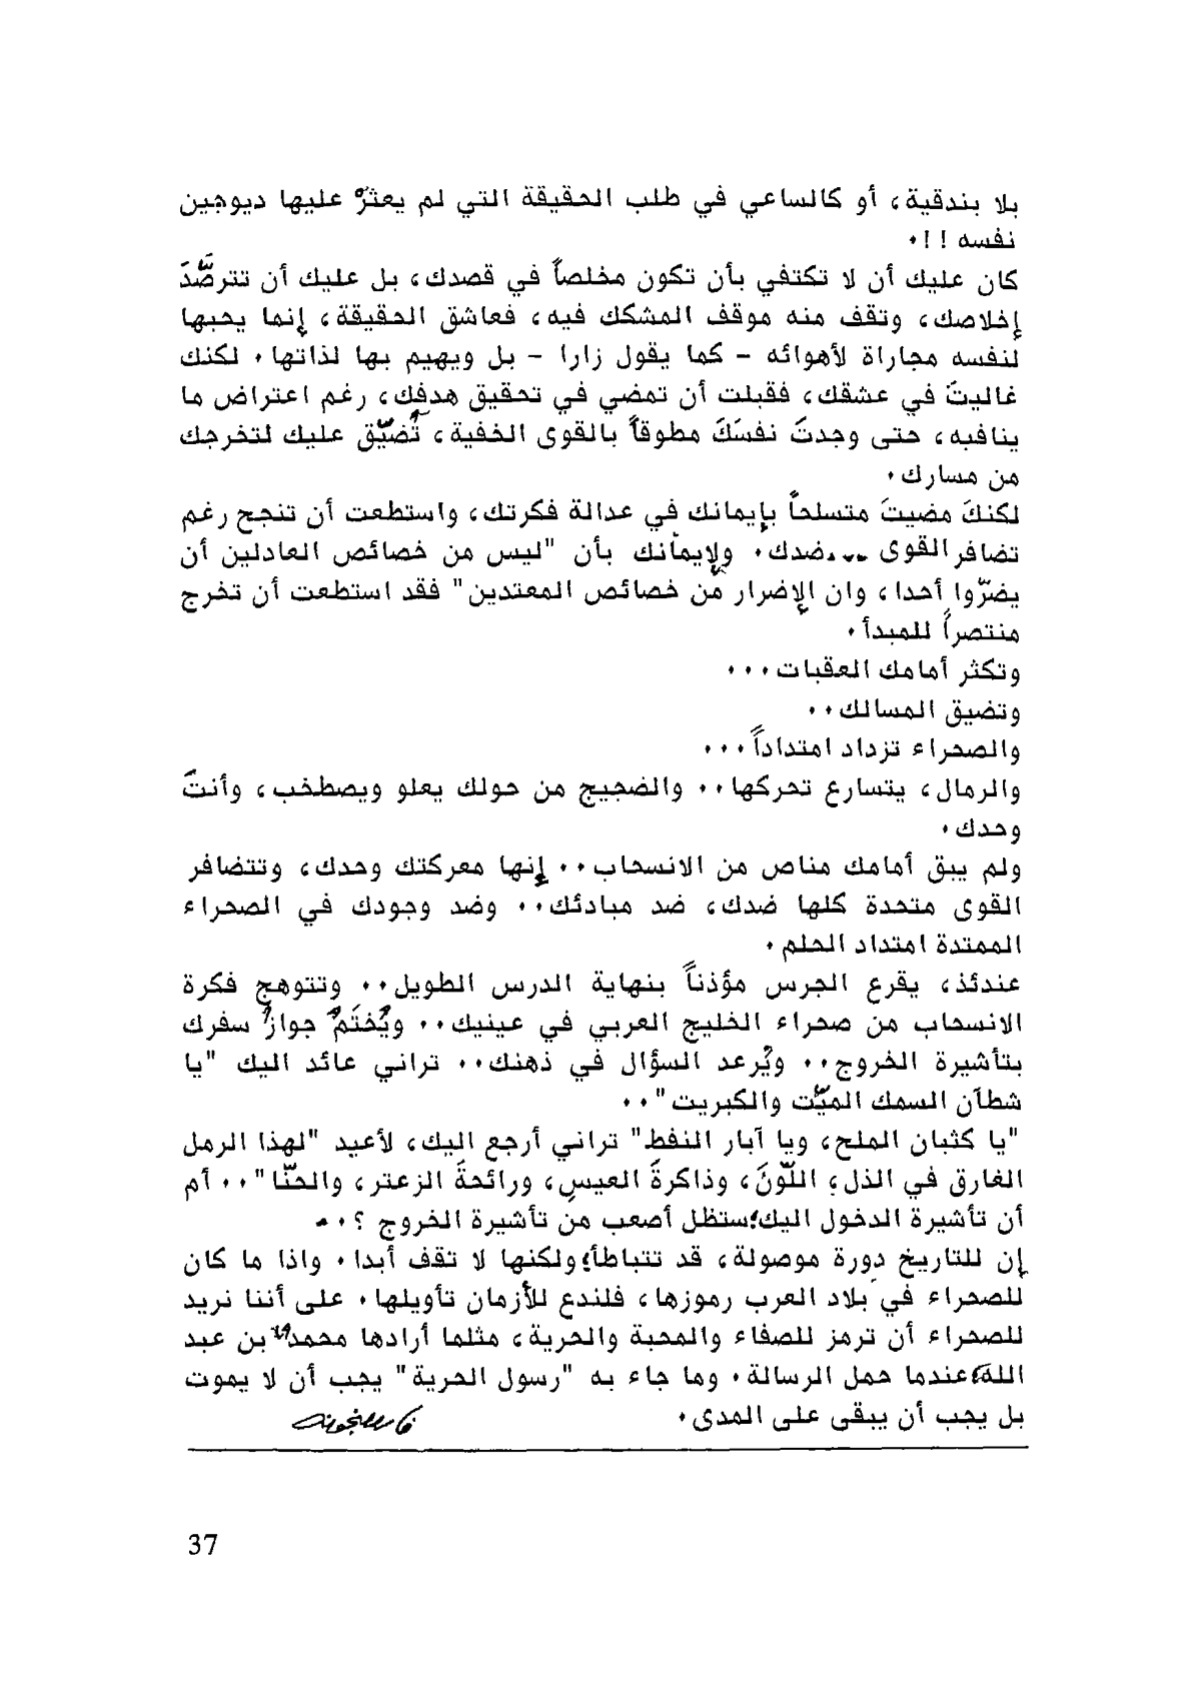 بلا بندقية، أو كالساعي في طلب الحقيقة التي لم يعثرْ عليها ديوجين
نفسه !!.
كان عليك أن لا تكتفي بأن تكون مخلصاً في قصدك، بل عليك أن تترصَّدَ
إخلاصك، وتقف منه موقف المشكك فيه، فعاشق الحقيقة، إنما يحبها
لنفسه مجاراة لأهوائه - كما يقول زارا - بل ويهيم بها لذاتها. لكنك
غاليتَ في عشقك، فقبلت أن تمضي في تحقيق هدفِك، رغم اعتراض ما
ينافيه، حتى وجدتَ نفسَكَ مطوقاً بالقوى الخفية، تُضيّق عليك لتخرجك
من مسارك.
لكنكَ مضيتَ متسلحاً بإيمانك في عدالة فكرتك، واستطعت أن تنجح رغم
تضافر القوى ... ضدك. ولإيمانك بأن "ليس من خصائص العادلين أن
يضرّوا أحدا، وان الإضرار من خصائص المعتدين" فقد استطعت أن تخرج
منتصراً للمبدأ.
وتكثر أمامك العقبات...
وتضيق المسالك..
والصحراء تزداد امتداداً...
والرمال، يتسارع تحركها.. والضجيج من حولك يعلو ويصطخب، وأنتَ
وحدك.
ولم يبق أمامك مناص من الانسحاب.. إنها معركتك وحدك، وتتضافر
القوى متحدة كلها ضدك، ضد مبادئك.. وضد وجودك في الصحراء
الممتدة امتداد الحلم.
عندئذ، يقرع الجرس مؤذناً بنهاية الدرس الطويل.. وتتوهج فكرة
الانسحاب من صحراء الخليج العربي في عينيك.. ويُختَمُ جوازُ سفرك
بتأشيرة الخروج.. ويُرعد السؤال في ذهنك.. تراني عائد اليك "يا
شطآن السمك الميّت والكبريت"..
"يا كثبان الملح، ويا آبار النفط" تراني أرجع اليك، لأعيد "لهذا الرمل
الغارق في الذل، اللّونَ، وذاكرةَ العيسِ، ورائحةَ الزعتر، والحنّا".. أم
أن تأشيرة الدخول اليك؛ستظل أصعب من تأشيرة الخروج ؟..
إن للتاريخ دورة موصولة، قد تتباطأ؛ولكنها لا تقف أبدا. واذا ما كان
للصحراء في بلاد العرب رموزها، فلندع للأزمان تأويلها. على أننا نريد
للصحراء أن ترمز للصفاء والمحبة والحرية، مثلما أرادها محمد بن عبد
الله عندما حمل الرسالة. وما جاء به "رسول الحرية" يجب أن لا يموت
بل يجب أن يبقى على المدى.
37